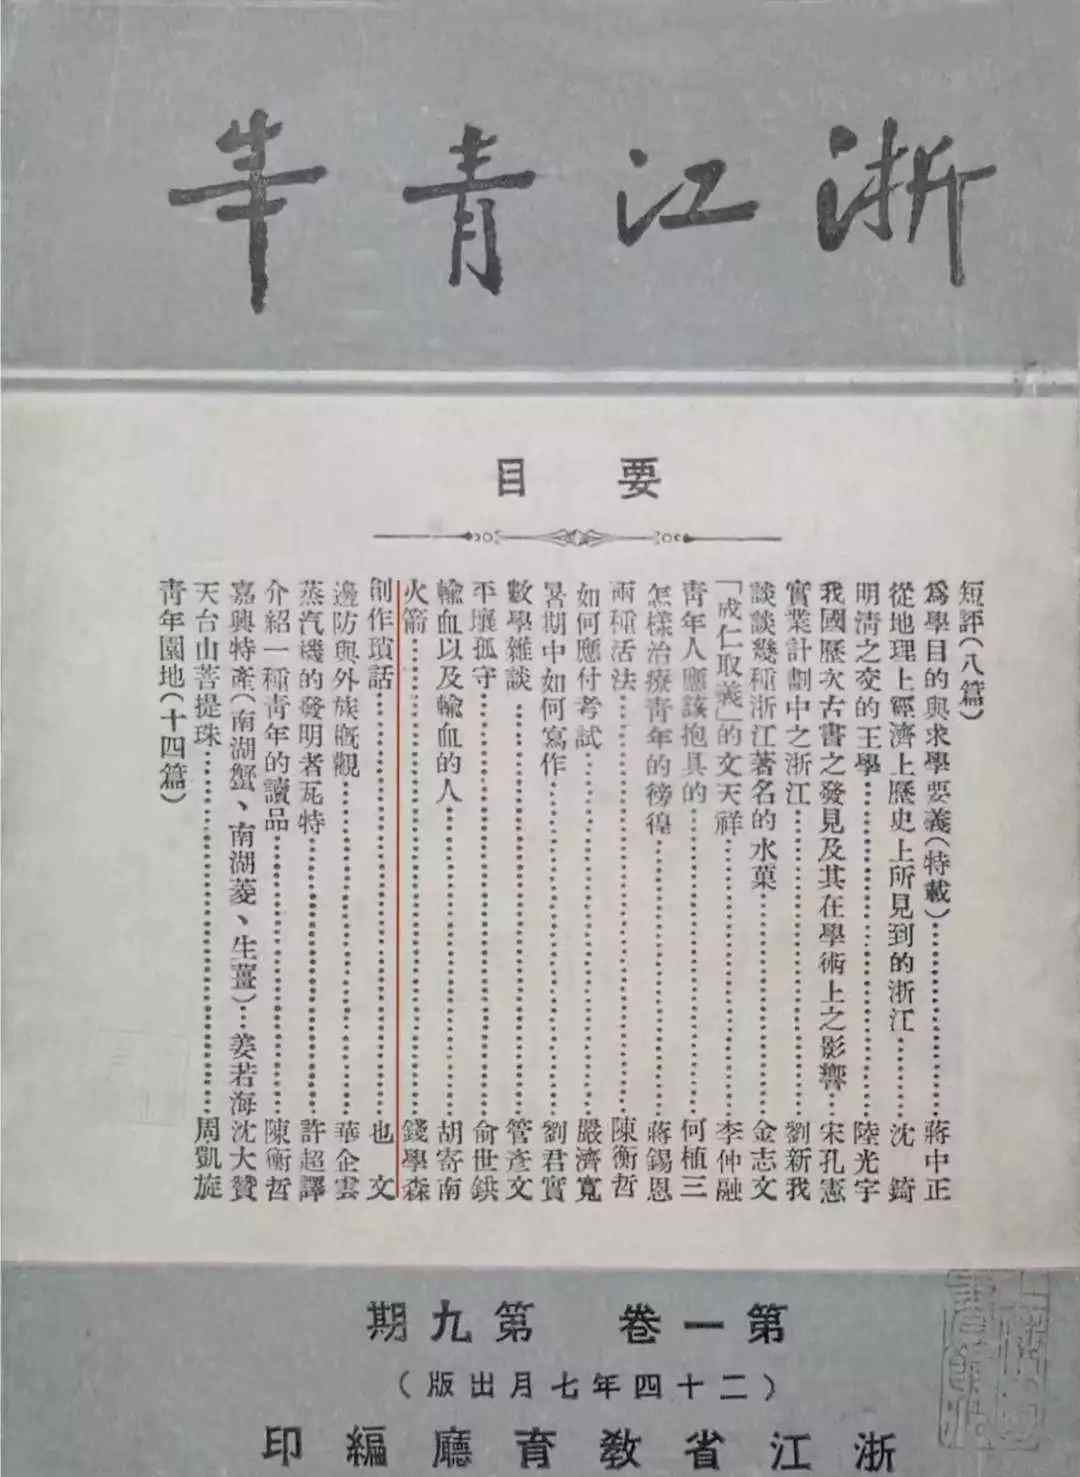 浙江青年
要目
短評(八篇)
爲學目的與求學要義(特載)……蔣中正
從地理上經濟上歷史上所見到的浙江……沈錡
明清之交的王學……陸光宇
我國歷次古書之發見及其在學術上之影響…宋孔憲
實業計劃中之浙江……劉新我
談談幾種浙江著名的水菓……金志文
「成仁取義」的文天祥……李仲融
靑年人應該抱具的……何植三
怎樣治療靑年的徬徨……蔣錫恩
兩種活法……陳衡哲
如何應付考試……嚴濟寬
暑期中如何寫作……劉君實
數學雜談……管彥文
平壤孤守……俞世鉷
輸血以及輸血的人……胡寄南
火箭……錢學森
創作瑣話……也文
邊防與外族槪觀……華企雲
蒸汽機的發明者瓦特……許超譯
介紹一種靑年的讀品……陳衡哲
嘉興特產(南湖蟹、南湖菱、生薑)…姜若海 沈大贊
天台山菩提珠……周凱旋
靑年園地(十四篇)
第一卷 第九期
(二十四年七月出版)
浙江省教育廳編印